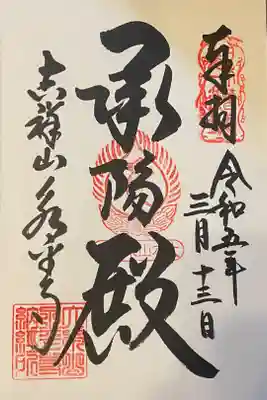 奉拝
令和五年
三月十三日
承陽殿
吉祥山永平寺